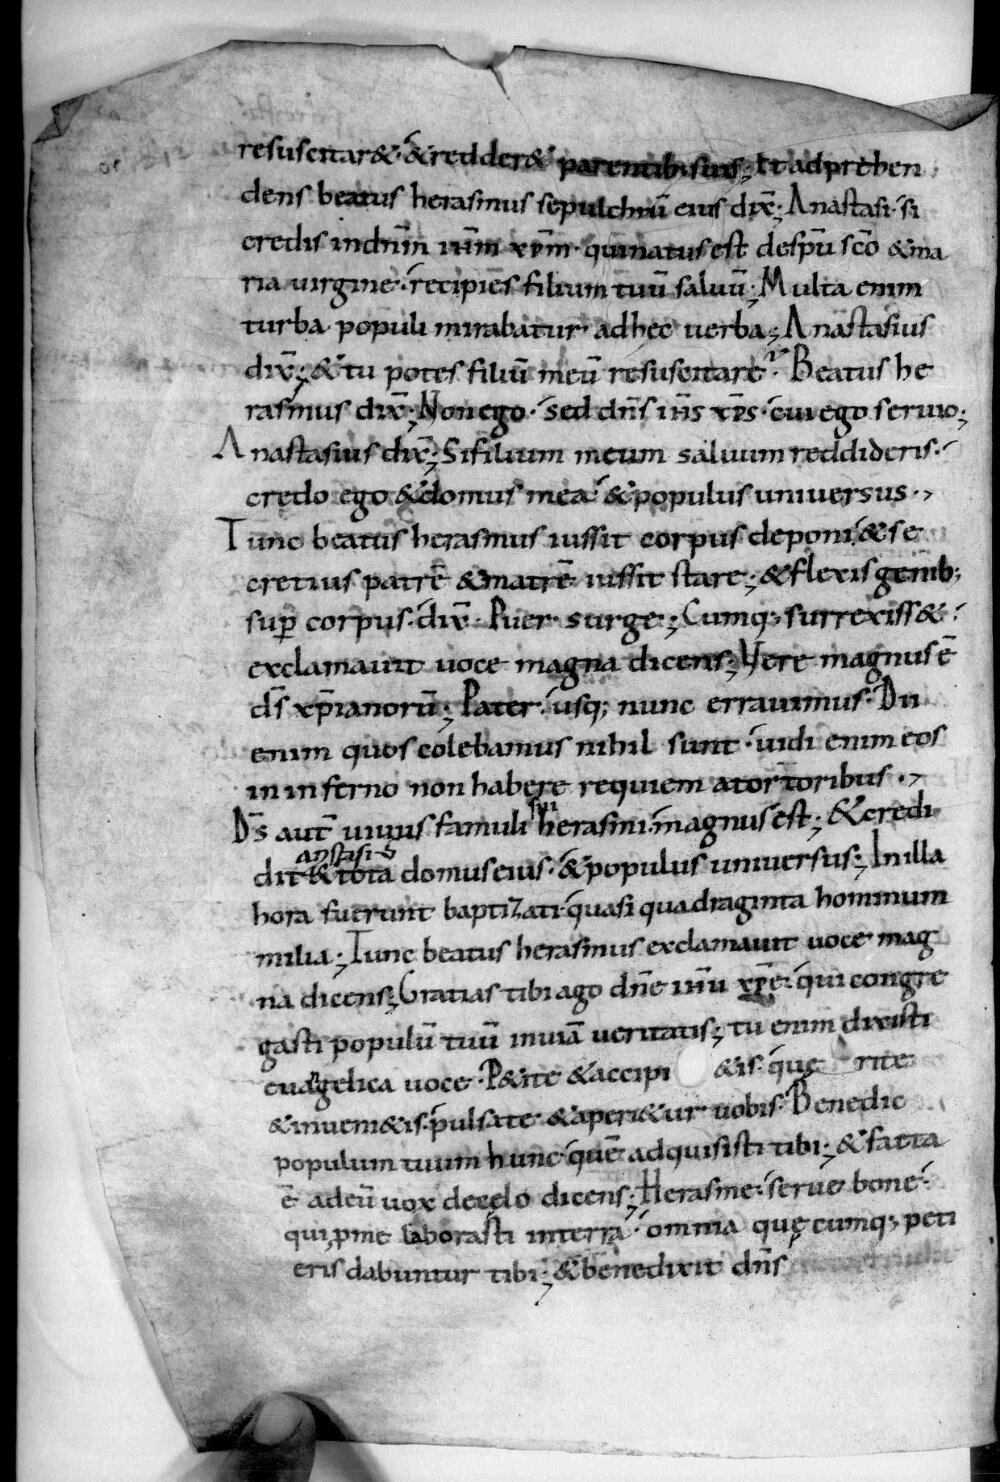 resuscitar&· & redder& parentib; suis; Et adprehen
dens beatus herasmus sepulchrū eius dix̄; Anastasi· si
credis in dn̄m ihm̄ xp̄m· qui natus est de sp̄u sc̄o & ma
ria virgine· recipies filium tuū saluū; Multa enim
turba populi mirabatur ad hęc uerba; Anastasius
dix̄; & tu potes filiū meū resuscitare? Beatus he
rasmus dix̄; Non ego· sed dn̄s ih̄s xp̄s· cui ego seruio;
Anastasius dix̄; Si filium meum saluum reddideris·
credo ego & domus mea· & populus uniuersus·,
Tunc beatus herasmus iussit corpus deponi· & se
cretius patrē & matrē iussit stare; & flexis genib;
sup̄ corpus· dix̄· Puer· surge; Cumq; surrexiss&·
exclamauit uoce magna dicens; Vere magnus ē
ds̄ xp̄ianorū; Pater· usq; nunc errauimus· Dii
enim quos colebamus nihil sunt· uidi enim eos
in inferno non habere requiem a tortoribus·,
Ds̄ aut̄ uiuus famuli sui herasmi· magnus est; & credi
dit anstasi᾿ & tota domus eius· & populus uniuersus; In illa
hora fuerunt baptizati· quasi quadraginta hominum
milia; Tunc beatus herasmus exclamauit uoce mag
na dicens; Gratias tibi ago dn̄e ihū xp̄e· qui congre
gasti populū tuū in uiā ueritatis; tu enim dixisti
euangelica uoce· P&ite & accipi &is· quę rite
& inueni&is· pulsate & aperi&ur uobis· Benedic
populum tuum hunc· quē adquisisti tibi; & facta
ē ad eū uox de cęlo dicens; Herasme· serue bone·
qui p̄ me laborasti in terra· omnia quę cumq; peti
eris dabuntur tibi; & benedixit dn̄s